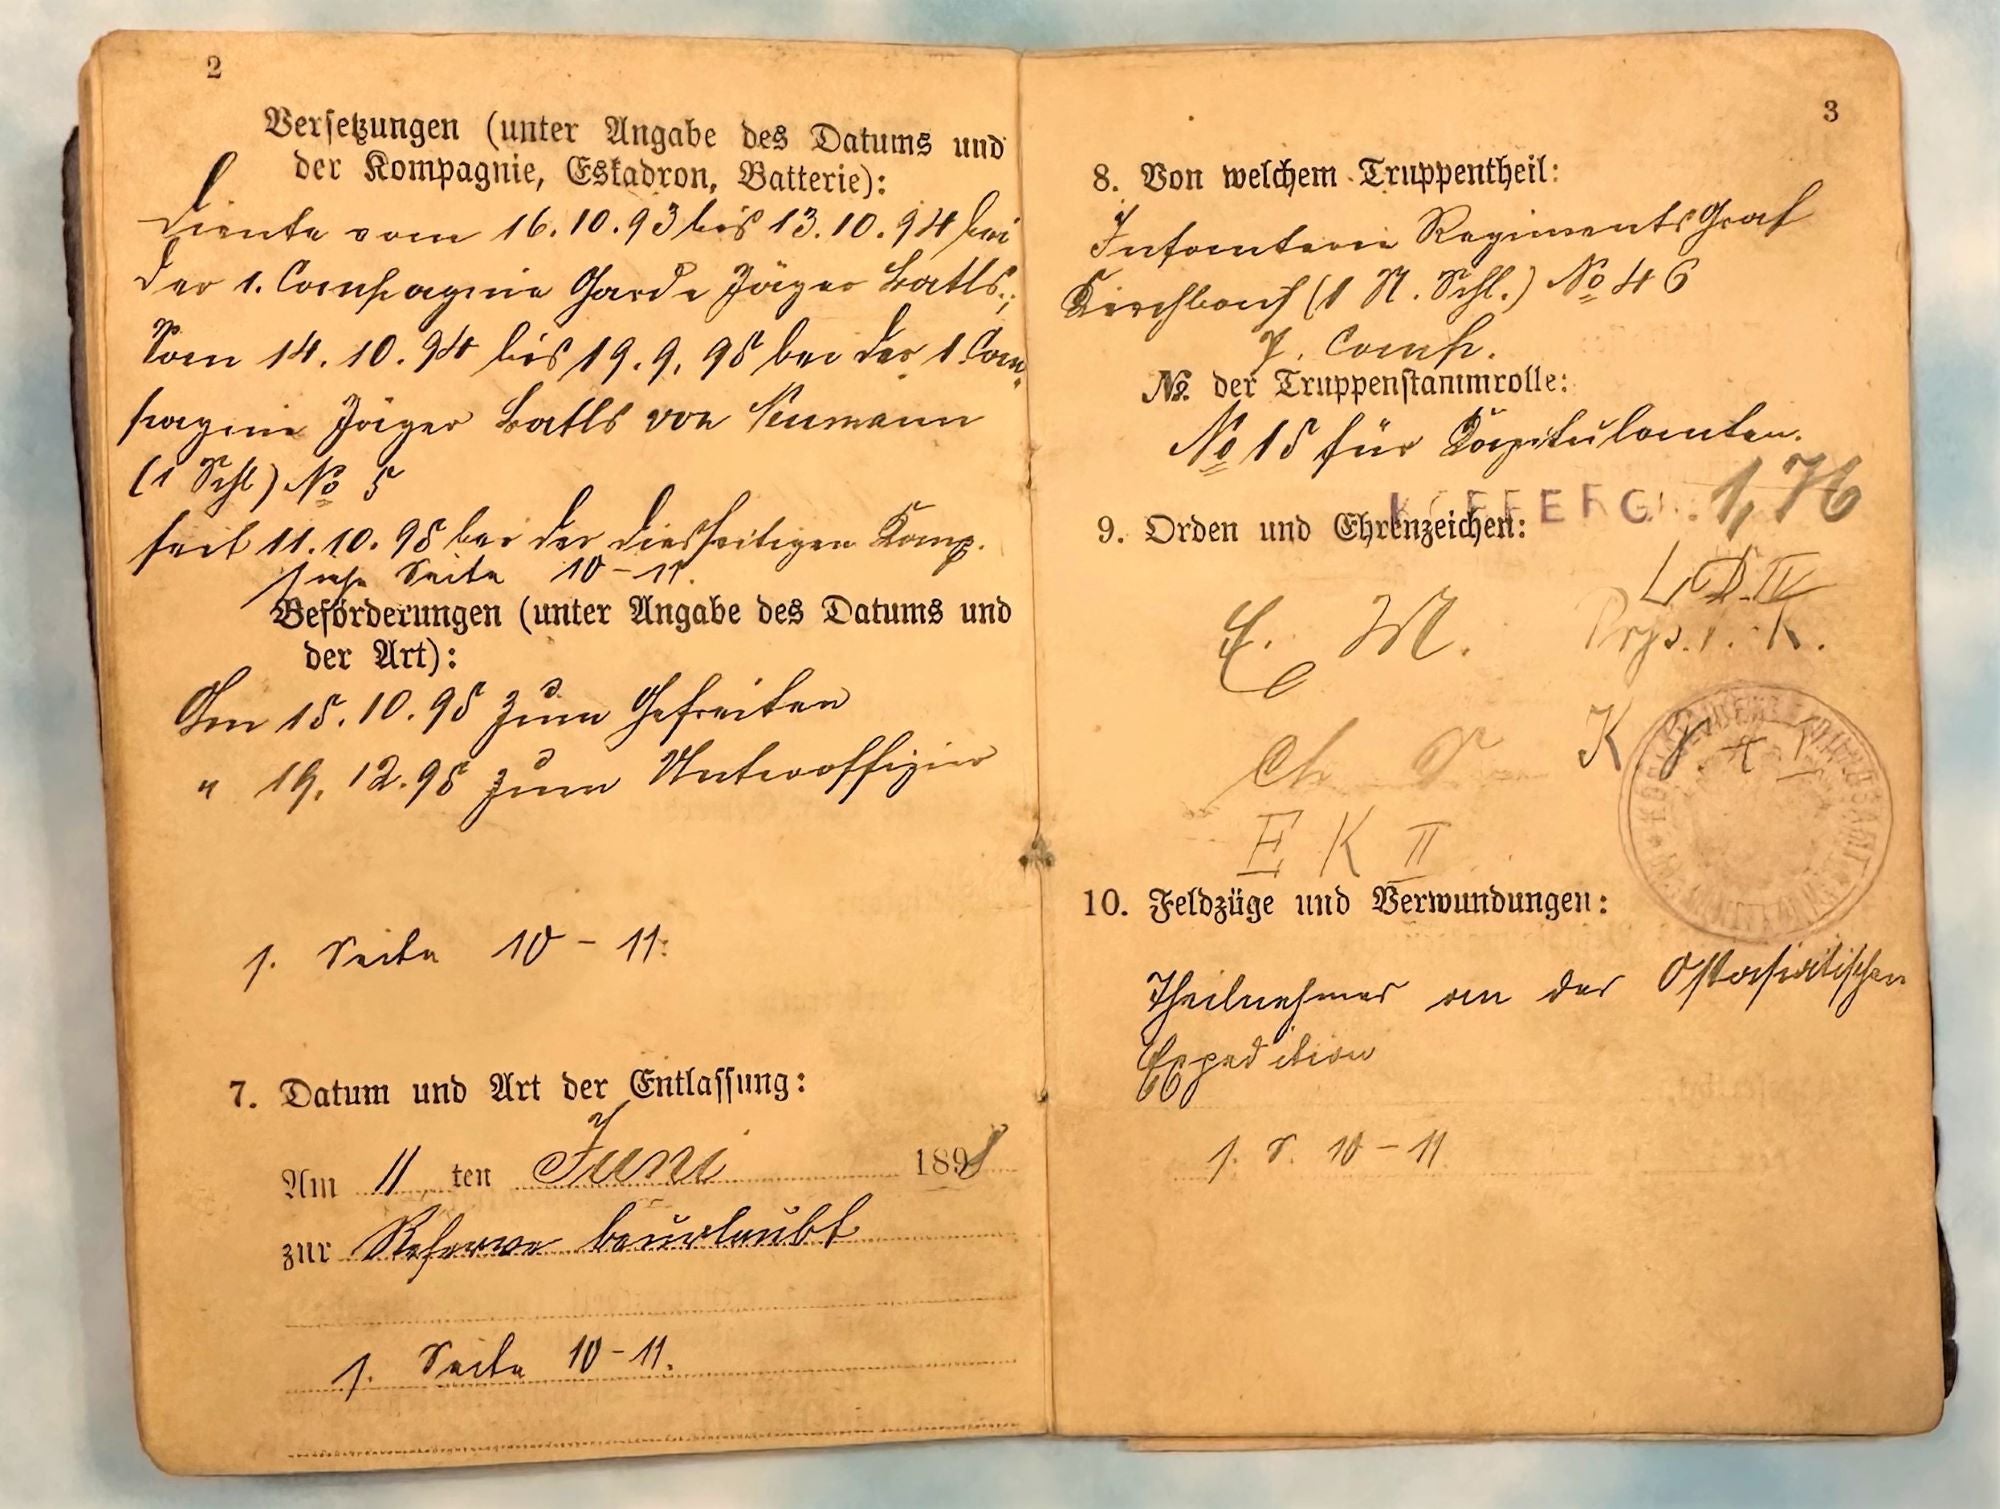 2
Versetzungen (unter Angabe des Datums und
der Kompagnie, Eskadron, Batterie):
Diente vom 16.10.93 bis 13.10.94 bei
der 1. Compagnie Garde Jäger Batls.;
Vom 14.10.94 bis 19.9.95 bei der 1 Com-
pagnie Jäger Batls von Neumann
(1 Schl) No 5
seit 11.10.95 bei der diesseitigen Komp.
siehe Seite 10-11.
Beförderungen (unter Angabe des Datums und
der Art):
Am 15.10.95 zum Gefreiten
" 19.12.95 zum Unteroffizier
s. Seite 10-11.
7. Datum und Art der Entlassung:
Am 11 ten Juni 1898
zur Reserve beurlaubt
s. Seite 10-11.
3
8. Von welchem Truppentheil:
Infanterie Regiments Graf
Kirchbach (1 N. Schl.) No 46
7. Comp.
No. der Truppenstammrolle:
No 15 für Kapitulanten.
1,76
9. Orden und Ehrenzeichen:
L D II
E. M. K.
Ch
E K II
10. Feldzüge und Verwundungen:
Theilnehmer an der Ostasiatischen
Expedition
s. S. 10-11